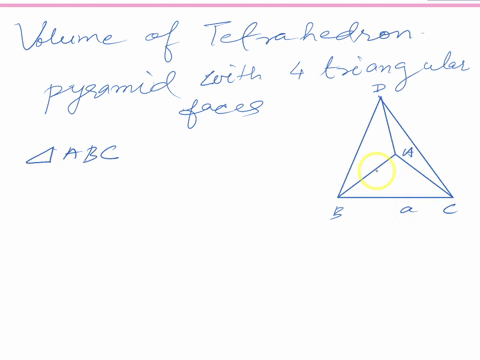 Volume of Tetrahedron.
pyramid with 4 triangular
faces
D
△ABC
A
B
a
C